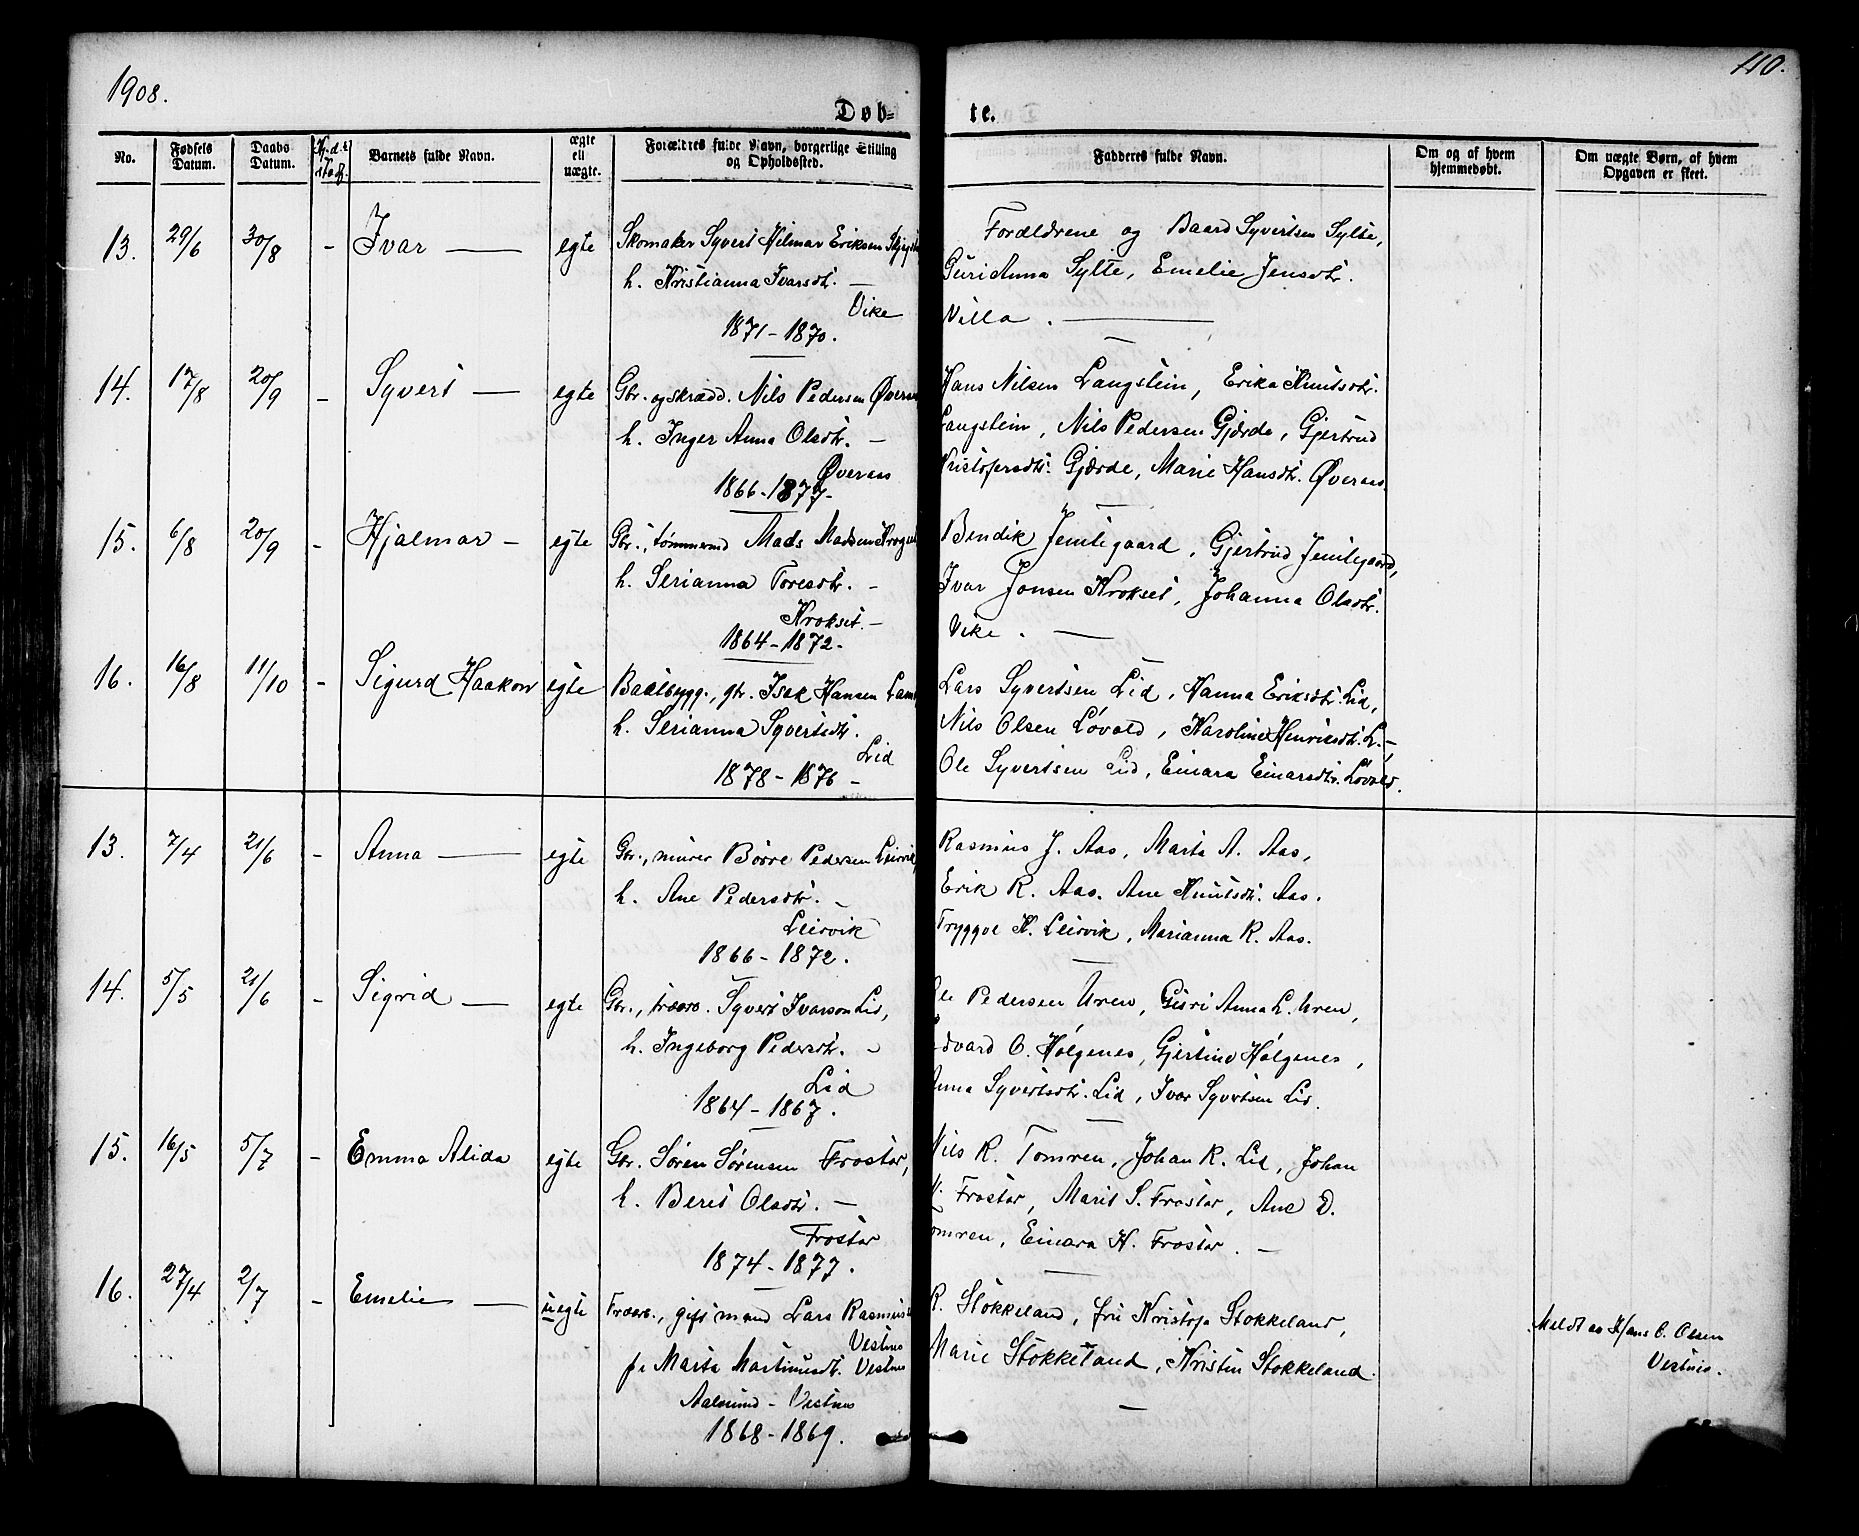 1908.
110.
Døb-
te.
No.
Fødsels Datum.
Daabs Datum.
Barnets fulde Navn.
ægte ell uægte.
Forældres fulde Navn, borgerlige Stilling og Opholdssted.
Fadderes fulde Navn.
Om og af hvem hjemmedøbt.
Om uægte Børn, af hvem Opgaven er skeet.
13. 29/6 30/8 - Ivar — egte Skomaker Syvert Hilmar Eriksen
h. Kristianna Ivarsdtr. —
Vike
1871 - 1870.
Forældrene og Baard Syvertsen Sylte,
Guri Anna Sylte, Emelie Jensdtr.
Villa. —
14. 17/8 20/9 - Syvert — egte Gbr. og skrædd. Nils Pedersen Øveraas
h. Inger Anna Olsdtr. —
Øveraas
1866 - 1877.
Hans Nilsen Langstein, Erika Knutsdtr.
Langstein, Nils Pedersen Gjærde, Gjertrud
Kristofersdtr. Gjærde, Marie Hansdtr. Øveraas.
15. 6/8 20/9 - Hjalmar — egte Gbr., tømmermd Mads Madsen
h. Serianna Toresdtr. -
Krokset. —
1864 - 1872.
Bendik Jemtegaard, Gjertrud Jemtegaard,
Ivar Jonsen Krokset, Johanna Olsdtr.
Vike. —
16. 16/8 11/10 - Sigurd Haakon egte Baatbygg., gbr. Isak Hansen
h. Serianna Syvertsdtr.
Lid
1878 - 1876 -
Lars Syvertsen Lid, Hanna Eriksdtr. Lid,
Nils Olsen Løvold, Karoline Henriksdtr. L. -
Ole Syvertsen Lid, Einara Einarsdtr. Løvold.
13. 7/4 21/6 - Anna — egte Gbr., murer Børre Pedersen Leirvik,
h. Ane Pedersdtr. -
Leirvik
1866 - 1872.
Rasmus J. Aas, Marta A. Aas,
Erik R. Aas. Ane Knutsdtr. Aas.
Tryggve K. Leirvik, Marianna R. Aas.
14. 5/5 21/6 - Sigrid — egte Gbr., træarb. Syvert Ivarson Lid,
h. Ingeborg Pedersdtr. -
Lid
1864 - 1867.
Ole Pedersen Uren, Guri Anna L. Uren,
Edvard O. Hølgenes, Gjertine Hølgenes,
Anna Syvertsdtr. Lid, Ivar Syvertsen Lid.
15. 16/5 5/7 - Emma Alida egte Gbr. Søren Sørensen Frostar,
h. Berit Olsdtr. —
Frostar
1874 - 1877.
Nils R. Tomren, Johan R. Lid, Johan
Frostar, Marit S. Frostar, Ane D.
Tomren, Einara H. Frostar. —
16. 27/4 2/7 - Emelie — uegte Træarb., gift mand Lars
Vestnes
p. Marta Martinusdtr. Vestnes
Aalesund - Vestnes
1868 - 1869.
R. Stokkeland, fru Kristofa Stokkeland,
Marie Stokkeland, Kristin Stokkeland.
Meldt av Hans O. Olsen
Vestnes.